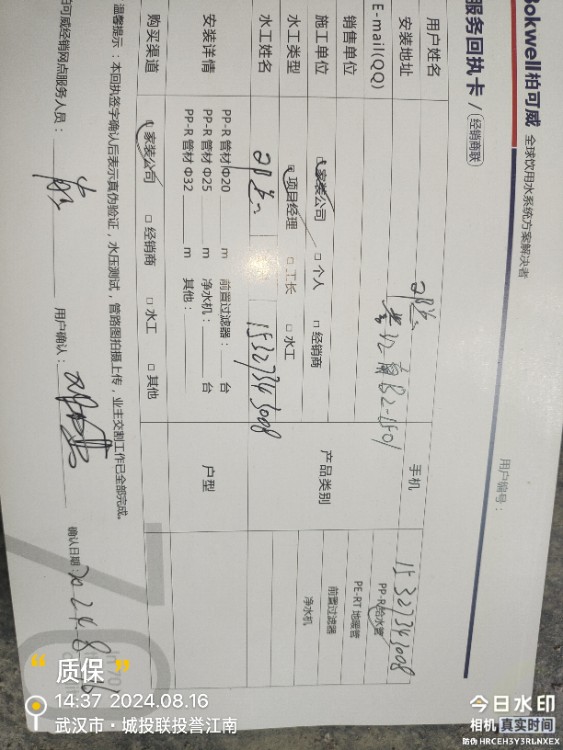 Bokwell柏可威 全球饮用水系统方案解决者
服务回执卡 / 经销商联
用户编号:
用户姓名
手机 15327343008
安装地址
E-mail(QQ)
销售单位
产品类别 PP-R给水管
PE-RT 地暖管
前置过滤器
净水机
施工单位 家装公司 □ 个人 □ 经销商
水工类型 项目经理 □ 工长 □ 水工
水工姓名 15327343008
安装详情 PP-R 管材 Φ20 m 前置过滤器: 台
PP-R 管材 Φ25 m 净水机: 台
PP-R 管材 Φ32 m 其他:
户型
购买渠道 家装公司 □ 经销商 □ 水工 □ 其他
温馨提示:本回执签字确认后表示真伪验证,水压测试,管路图拍摄上传,业主交割工作已全部完成。
柏可威经销网点服务人员:
用户确认:
确认日期: 2024.8.16
质保
14:37 2024.08.16
武汉市·城投联投誉江南
今日水印
相机 真实时间
防伪 HRCEH3Y3RLNXEX